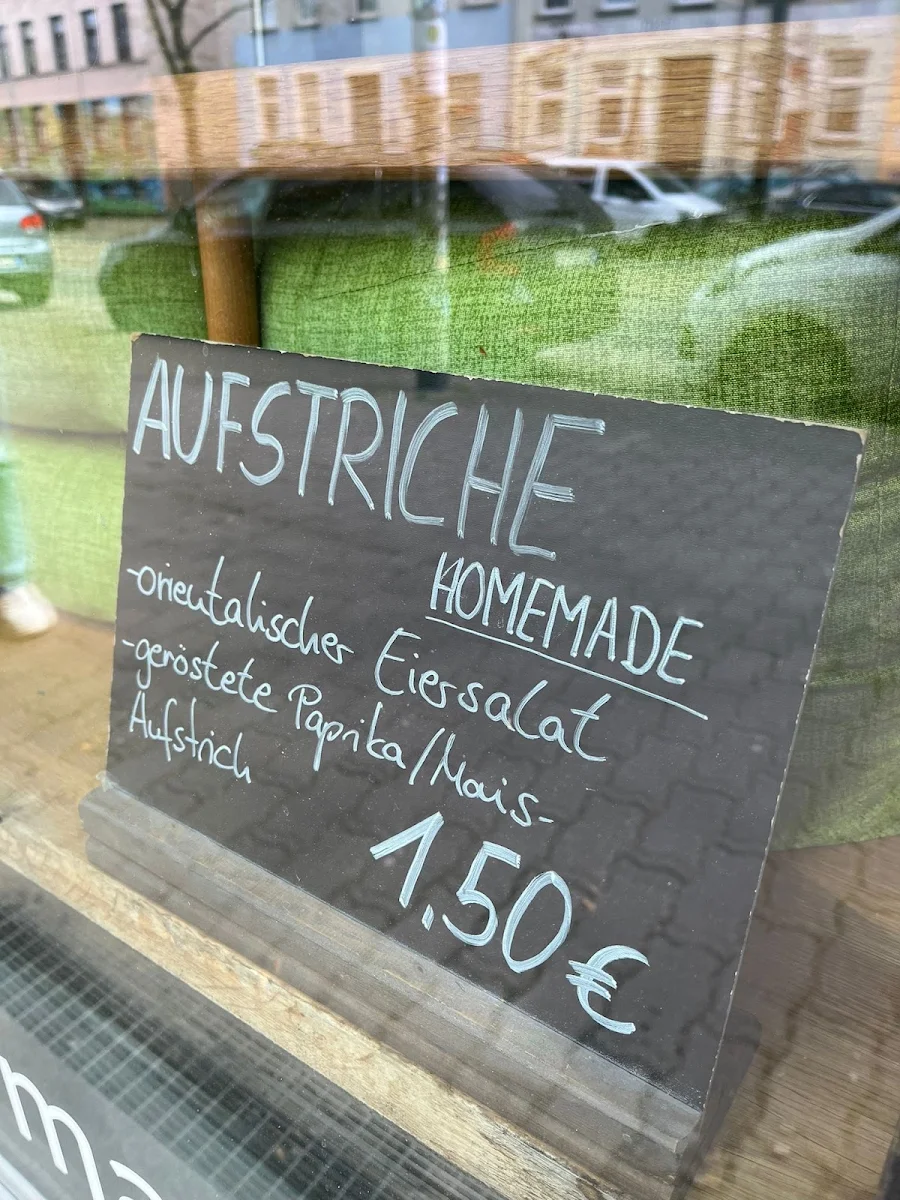 AUFSTRICHE
HOMEMADE
-orientalischer Eiersalat
-geröstete Paprika/Mais-
Aufstrich
1.50 €
ma